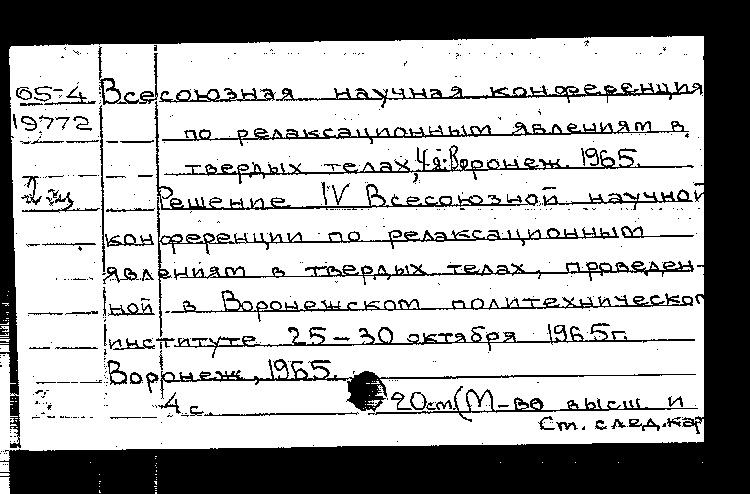 65-4 Всесоюзная научная конференция
19772 по релаксационным явлениям в
твердых телах, 4я. Воронеж. 1965.
2 экз Решение IV Всесоюзной научной
конференции по релаксационным
явлениям в твердых телах, проведен-
ной в Воронежском политехническом
институте 25-30 октября 1965г.
Воронеж, 1965.
4 с. 20см (М-во высш. и
См. след. кар